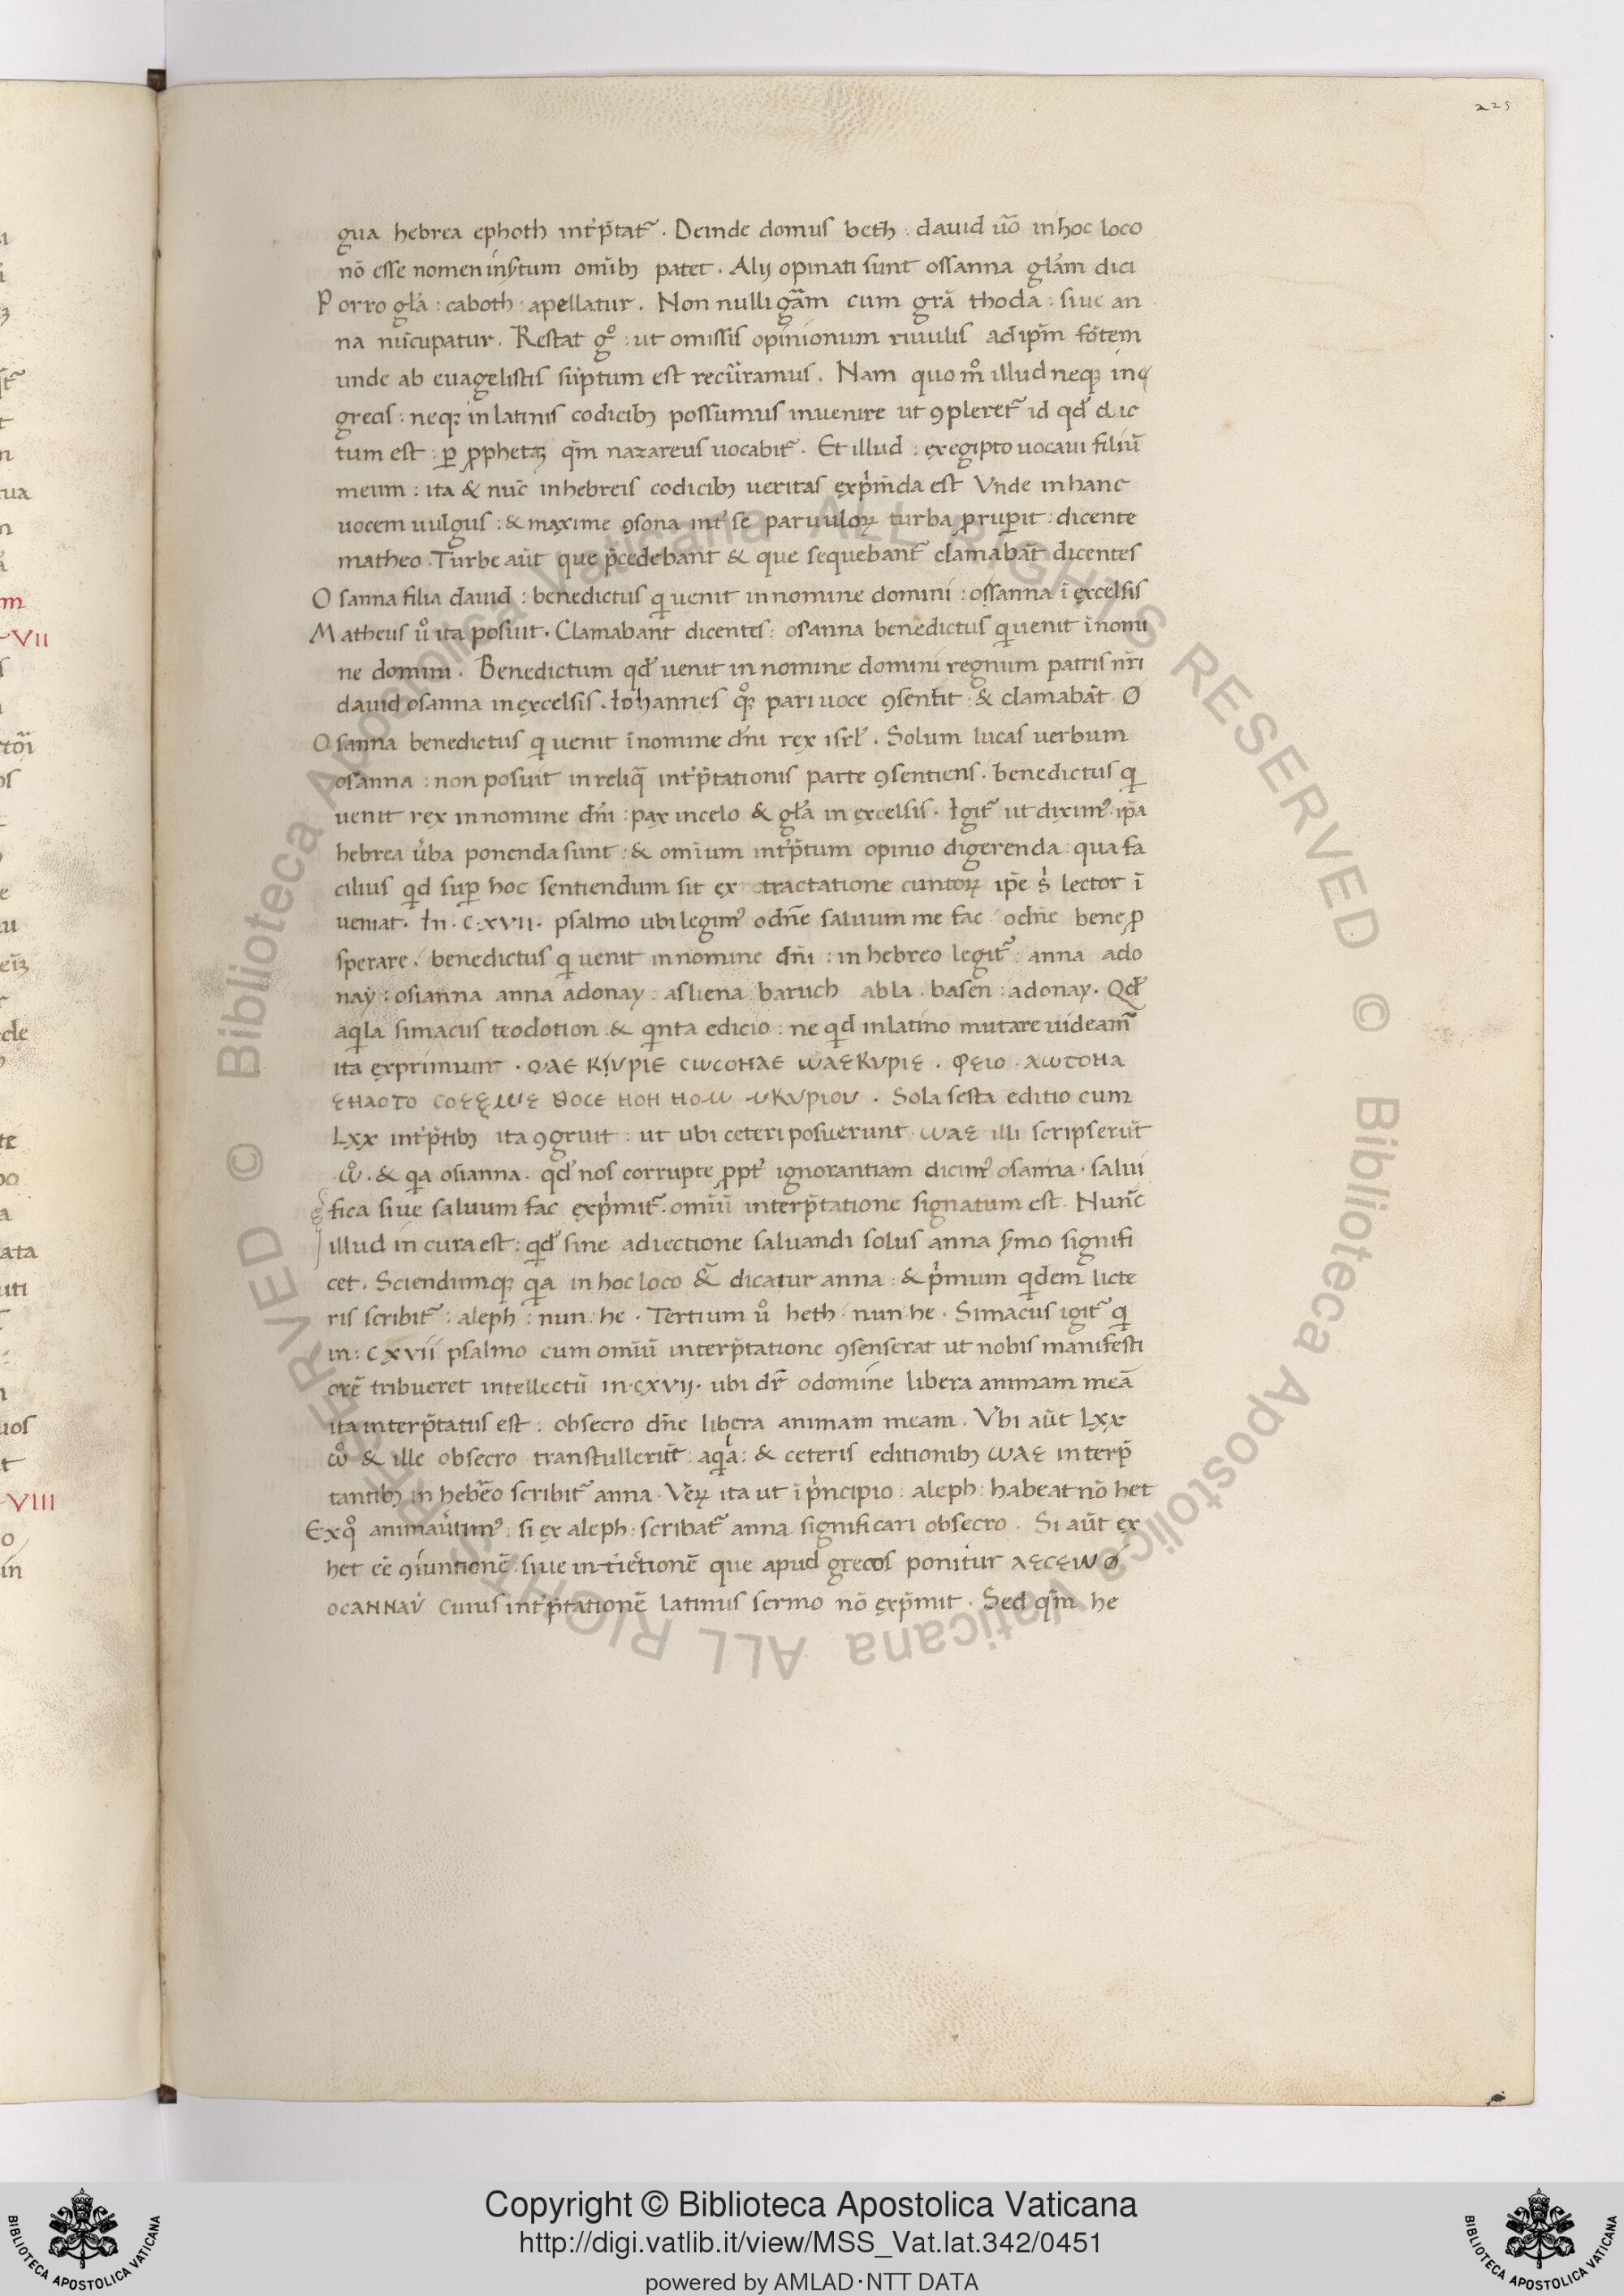 225
gua hebrea ephoth int̓p̄tat᷑ . Deinde domus beth : dauid ūo inhoc loco
nō esse nomen insȳtum omībꝫ patet . Alij opinati sunt ossanna gl̄am dici
Porro gl̄a : caboth : apellatur . Non nulli gāam cum grā thoda : siue an
na nūcupatur . Restat gͦ : ut omissis opinionum riuulis ad ip̄m fōtem
unde ab euagelistis sūptum est recūramus . Nam quo mͦ illud neqꝫ in
grecis : neqꝫ in latinis codicibꝫ possumus inuenire ut ꝯpleret᷑ id qd̄ dic
tum est : ꝑ ꝓphetaꝫ qm̄ nazareus uocabit᷑ . Et illud : ex egipto uocaui filiū
meum : ita & nūc inhebreis codicibꝫ ueritas exp̓m̄da est Vnde inhanc
uocem uulgus : & maxime ꝯsona int̓ se paruuloꝝ turba ꝓruꝑit : dicente
matheo . Turbe aūt que p̄cedebant & que sequebant᷑ clamabāt dicentes
Osanna filia dauid : benedictus qi uenit innomine domini : ossanna ī excelsis
Matheus uͦ ita posuit . Clamabant dicentes : osanna benedictus qi uenit īnomi
ne domini . Benedictum qd̄ uenit in nomine domini regnum patris nr̄i
dauid osanna inexcelsis . Iohannes qͦꝫ pari uoce ꝯsentit : & clamabāt O
Osanna benedictus qi uenit īnomine dn̄i rex isrl̄ . Solum lucas uerbum
osanna : non posuit inreliqā int̓p̄tationis parte ꝯsentiens . benedictus qi
uenit rex innomine dn̄i : pax incelo & gl̄a in excelsis . Igit᷑ ut dixim᷒ . ip̄a
hebrea u̓ba ponenda sunt : & omīum int̓p̄tum opinio digerenda : qua fa
cilius qid suꝑ hoc sentiendum sit ex tractatione cuntoꝝ ip̄e s̓ lector ī
ueniat . In . C . XVII . psalmo ubi legim᷒ odn̄e saluum me fac odn̄e bene ꝓ
sperare . benedictus qi uenit innomine dn̄i : in hebreo legit᷑ : anna ado
nay : osianna anna adonay : asliena baruch abla . basen : adonay . Qd̄
aqila simacus teodotion & qinta edicio : ne qid inlatino mutare uideam᷑
ita exprimunt . ΟΑΕ ΚΙΥΡΙΕ CωCΟΗΑΕ ωΑΕΚΥΡΙΕ . ΦΕΙΟ . ΑωΤΟΗΑ
ΕΗΑΟΤΟ . Sola sesta editio cum
LXX int̓p̄tibꝫ ita ꝯgruit : ut ubi ceteri posuerunt ωΑΕ illi scripserūt
ωͦ . & qia osianna . qd̄ nos corrupte ꝓpt̓ ignorantiam dicim᷒ osanna . salui
fica siue saluum fac exp̓mit᷑ . omīū interp̄tatione signatum est . Nunc̄
illud in cura est : qd̄ sine adiectione saluandi solus anna s̓mo signifi
cet . Sciendumqꝫ qia in hoc loco &̄ dicatur anna : & p̓mum qidem licte
ris scribit᷑ : aleph : nun : he . Tertium uͦ heth . nun : he . Simacus igit᷑ qi
in : CXVII psalmo cum omīū interp̄tatione ꝯsenserat ut nobis manifesti
orē tribueret intellectū in . CXVII . ubi dr̄ odomine libera animam meā
ita interp̄tatus est : obsecro dn̄e libera animam meam . Vbi aūt LXX
ωͦ & ille obsecro transtullerūt : aqila : & ceteris editionibꝫ ωΑΕ interp̄
tantibꝫ in hebreo scribit᷑ anna . Veꝝ ita ut īp̓ncipio : aleph : habeat nō het
Exqͦ animau̓tim᷒ : si ex aleph : scribat᷑ anna significari obsecro . Si aūt ex
het eē ꝯiuntionē siue intiētionē que apud grecos ponitur
ΟCΑΝΝΑΥ cuius int̓p̄tationē latinus sermo nō exp̓mit . Sed qm̄ he
tua
m
VII
cle
ata
uos
VIII
in
© Biblioteca Apostolica Vaticana ALL RIGHTS RESERVED © Biblioteca Apostolica Vaticana ALL RIGHTS RESERVED
Copyright © Biblioteca Apostolica Vaticana
http://digi.vatlib.it/view/MSS_Vat.lat.342/0451
powered by AMLAD·NTT DATA
BIBLIOTECA APOSTOLICA VATICANA
BIBLIOTECA APOSTOLICA VATICANA